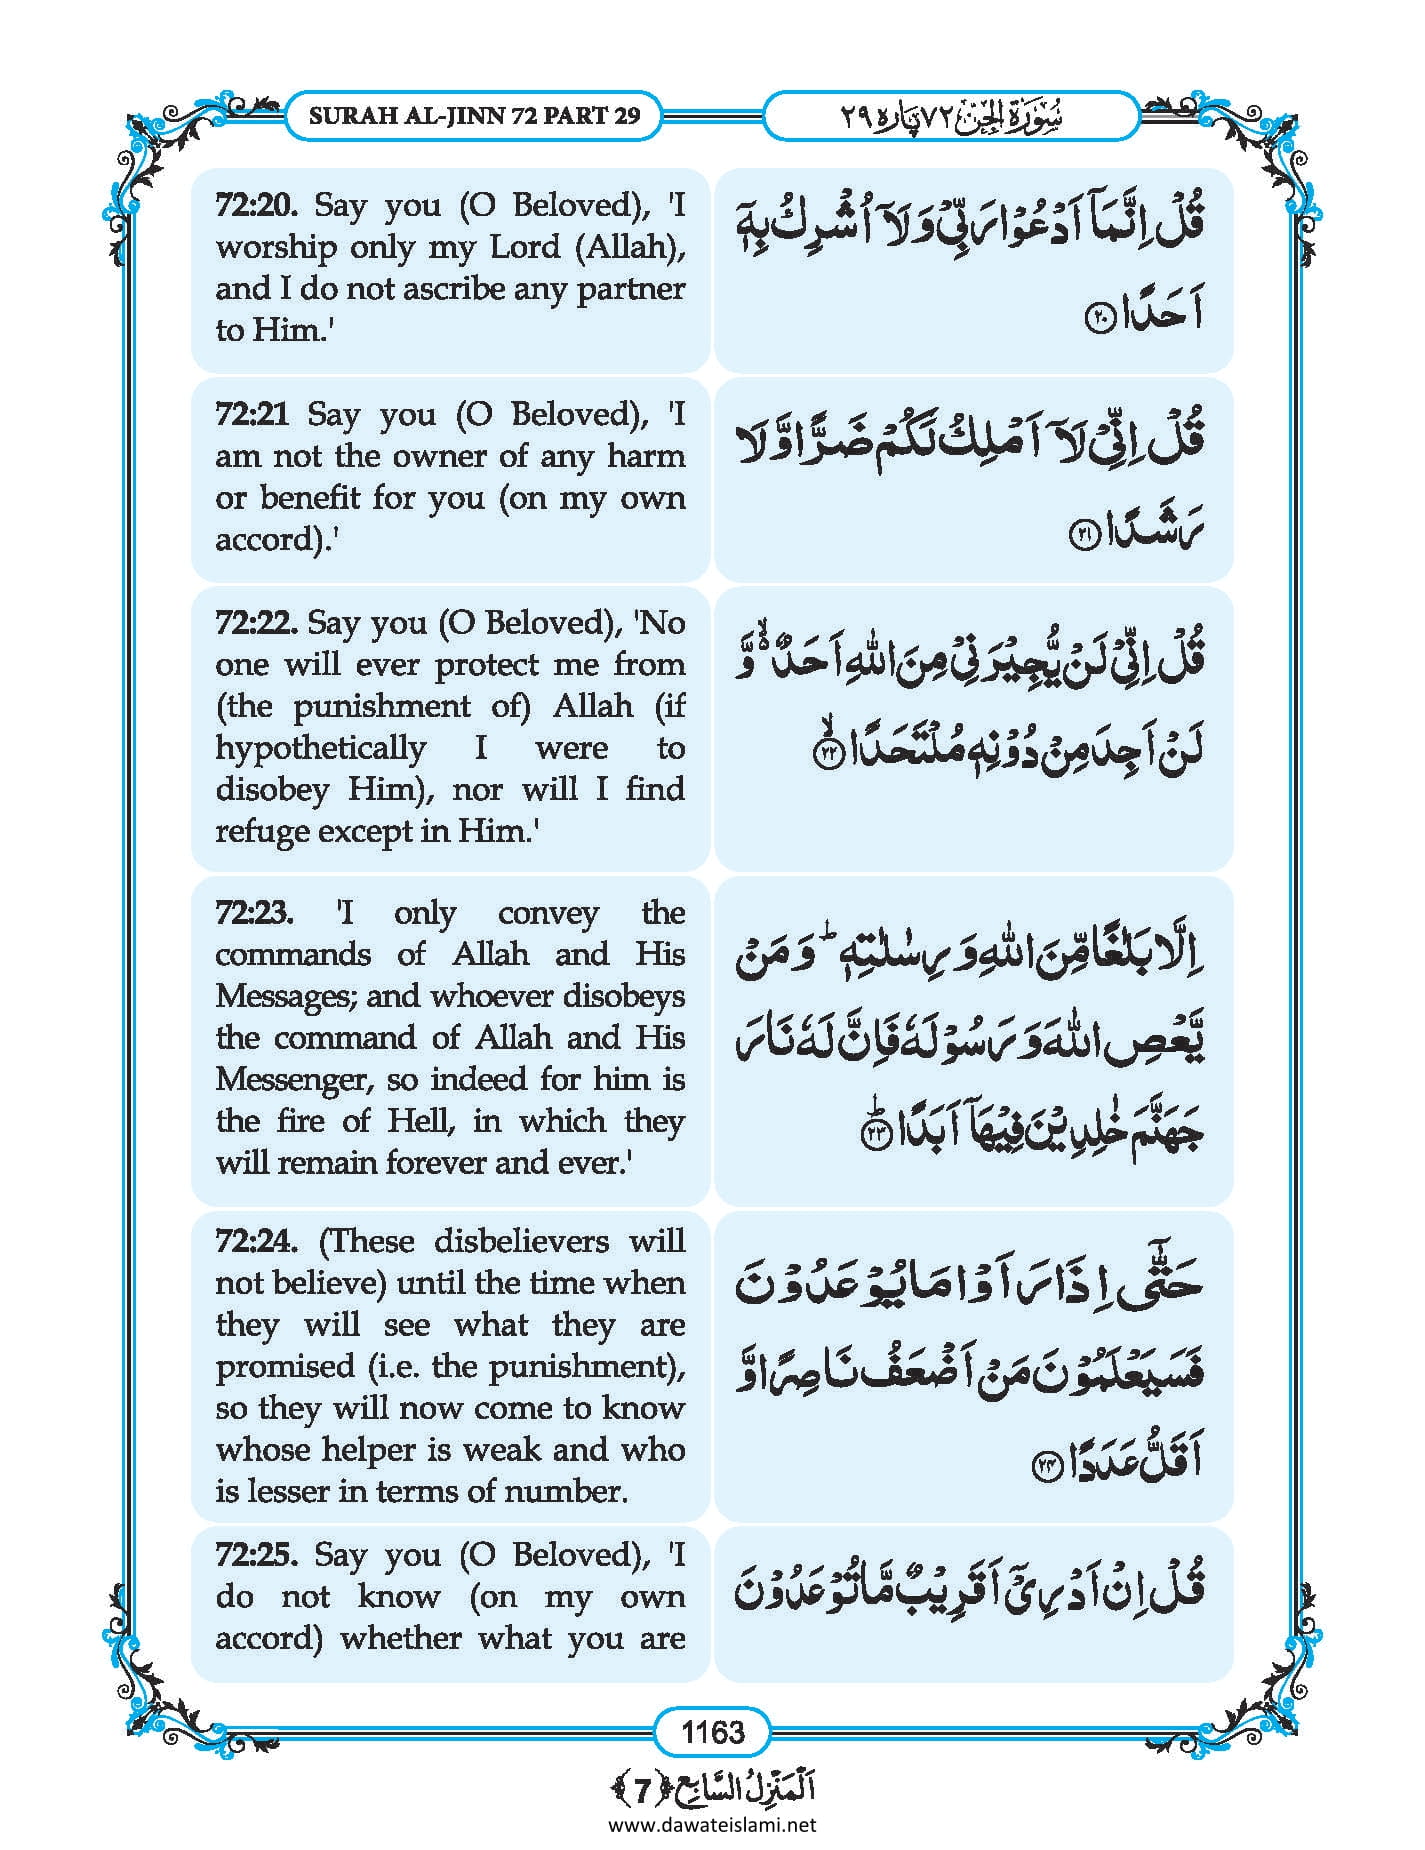 SURAH AL-JINN 72 PART 29
سُوْرَةُ الْجِنّ ٧٢ پَارہ ٢٩
72:20. Say you (O Beloved), 'I
worship only my Lord (Allah),
and I do not ascribe any partner
to Him.'
قُلْ اِنَّمَاۤ اَدْعُوْا رَبِّیْ وَلَاۤ اُشْرِكُ بِهٖۤ
اَحَدًا ﴿۲۰﴾
72:21 Say you (O Beloved), 'I
am not the owner of any harm
or benefit for you (on my own
accord).'
قُلْ اِنِّیْ لَاۤ اَمْلِكُ لَكُمْ ضَرًّا وَّ لَا
رَشَدًا ﴿۲۱﴾
72:22. Say you (O Beloved), 'No
one will ever protect me from
(the punishment of) Allah (if
hypothetically I were to
disobey Him), nor will I find
refuge except in Him.'
قُلْ اِنِّیْ لَنْ یُّجِیْرَنِیْ مِنَ اللّٰهِ اَحَدٌ ۙ۬ وَّ
لَنْ اَجِدَ مِنْ دُوْنِهٖ مُلْتَحَدًا ﴿ۙ۲۲﴾
72:23. 'I only convey the
commands of Allah and His
Messages; and whoever disobeys
the command of Allah and His
Messenger, so indeed for him is
the fire of Hell, in which they
will remain forever and ever.'
اِلَّا بَلٰغًا مِّنَ اللّٰهِ وَ رِسٰلٰتِهٖ ؕ وَ مَنْ
یَّعْصِ اللّٰهَ وَ رَسُوْلَهٗ فَاِنَّ لَهٗ نَارَ
جَهَنَّمَ خٰلِدِیْنَ فِیْهَاۤ اَبَدًا ﴿ؕ۲۳﴾
72:24. (These disbelievers will
not believe) until the time when
they will see what they are
promised (i.e. the punishment),
so they will now come to know
whose helper is weak and who
is lesser in terms of number.
حَتّٰۤی اِذَا رَاَوْا مَا یُوْعَدُوْنَ
فَسَیَعْلَمُوْنَ مَنْ اَضْعَفُ نَاصِرًا وَّ
اَقَلُّ عَدَدًا ﴿۲۴﴾
72:25. Say you (O Beloved), 'I
do not know (on my own
accord) whether what you are
قُلْ اِنْ اَدْرِیْۤ اَقَرِیْبٌ مَّا تُوْعَدُوْنَ
1163
اَلْمَنْزِلُ السَّابِع ﴿7﴾
www.dawateislami.net